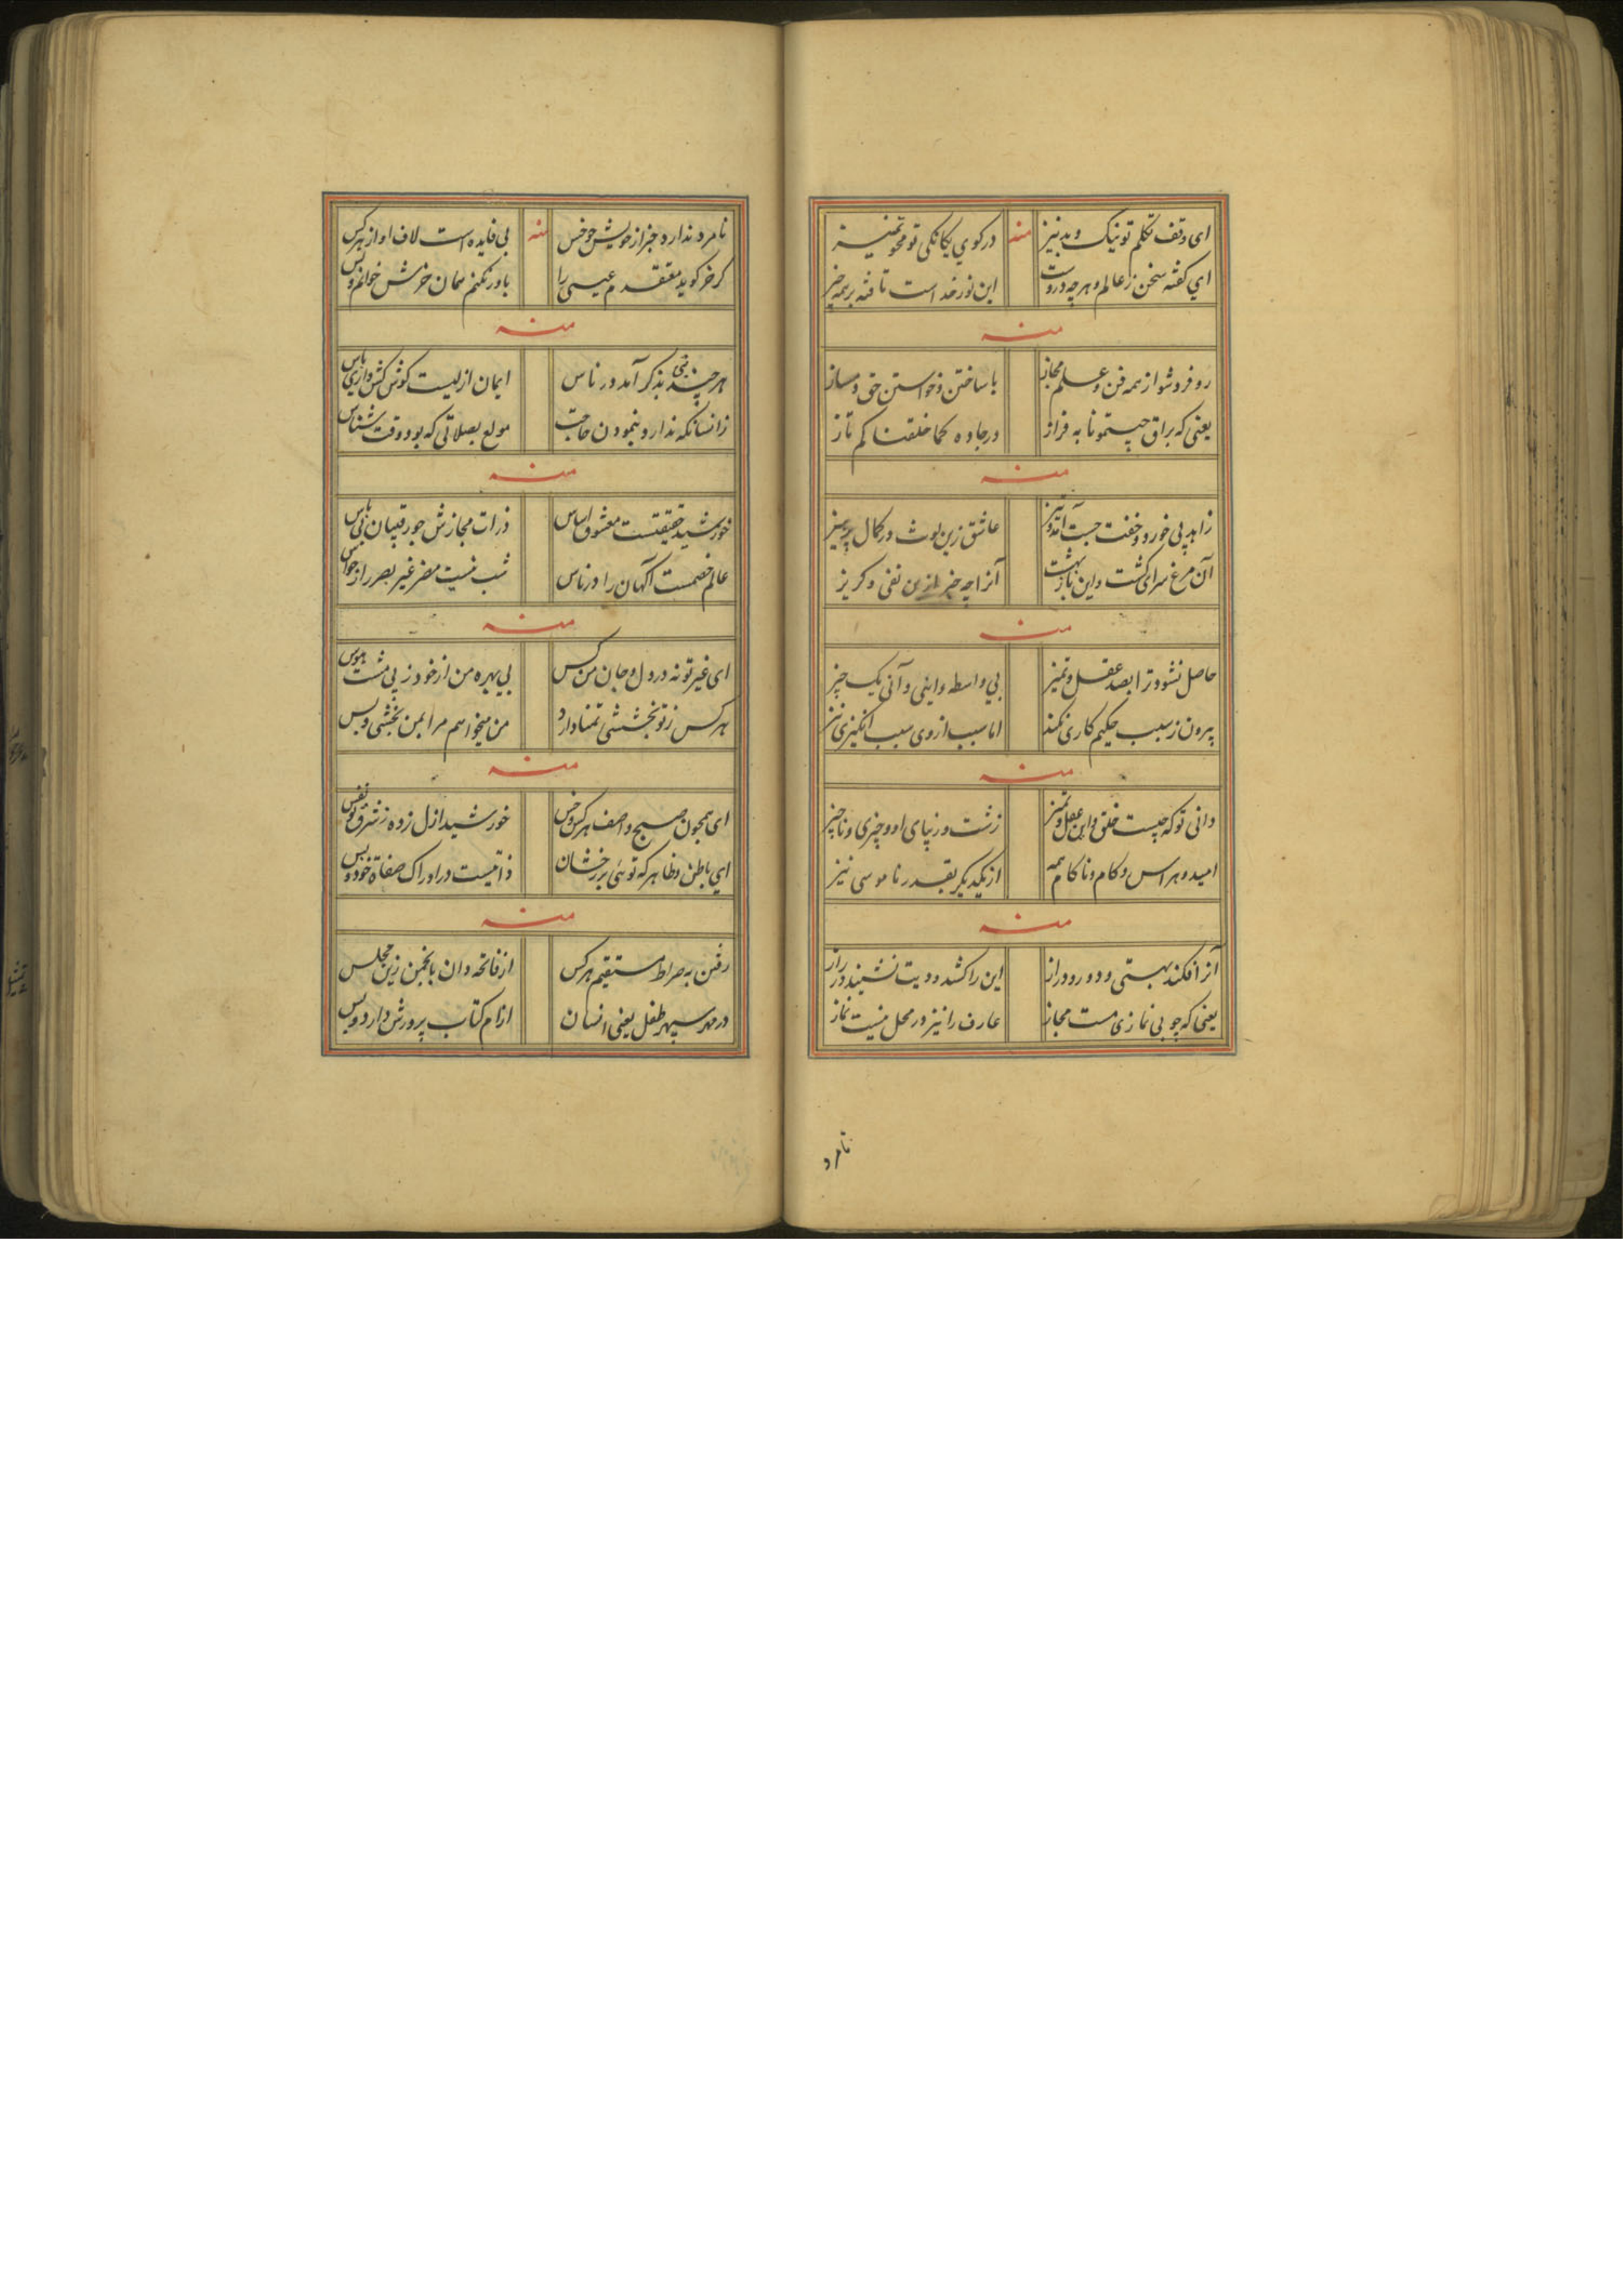 ای وقف تکلم تو نیک و بد نیز منه در کوی یکانکی تو محو تمیز
ای کفته سخن ز عالم و هرچه دروست این نور خداست تافته بر همه چیز
منه
رو فرد شو از همه فن و علم مجاز با ساختن و خواستن حق دمساز
یعنی که براق جیتمونا به فراز در جاده کما خلقناکم تاز
منه
زاهد پی خورد و خفت جست عاشق زین لوث در کمال پرهیز
آن مرغ سرای کشت و این باز بهشت آنرا چه خبر ازین نفی و کریز
منه
حاصل نشود ترا بصد عقل و تمیز بی واسطه و اینی و آنی یک چیز
بیرون ز سبب حکیم کاری نکند اما سبب از وی سبب انکیزی نیز
منه
دانی تو که چیست خلق و این عقل و تمیز زشت و زیبای او و چیزی و ناچیز
امید و هراس و کام و ناکام همه از یکدیکر بقدر ناموسی نیز
منه
آنرا فکند بهستی و دور و دراز این را کشد و دیت نشیند در راز
یعنی که چو بی نمازی مست مجاز عارف را نیز در محل نیست نماز
نامرد
نامرد ندارد جز از خویش چو خس منه بی فایده است لاف او از هر کس
کر خر کوید معتقدم عیسی را باور نکنم همان خرش خوانم و بس
منه
هر چند نبی بذکر آمد در ناس ایمان ازلیست کوش کش داری پاس
زانسانکه ندارد بنمودن حاجت مولع بصلاتی که بود وقت شناس
منه
خورشید حقیقتست معشوق اساس ذرات مجازش چو رقیبان بی پاس
عالم خصمست آکهان را در ناس شب نیست مضر غیر بصر را ز حواس
منه
ای غیر تو نه در دل و جان من کس بی بهره من از خود ز پی مشت هوس
هر کس ز تو بخششی تمنا دارد من میخواهم مرا بمن بخشی و بس
منه
ای همچون صبح واصف هر کس و خس خورشید ازل زده ز شرق تو نفس
ای باطن و ظاهر که توئی بر رخشان ذاتیست در ادراک صفاة خود و بس
منه
رفتن به صراط مستقیم هر کس از فاتحه دان بانجمن زین مجلس
در مهد سپهر طفل یعنی انسان از ام کتاب پرورش دارد و بس